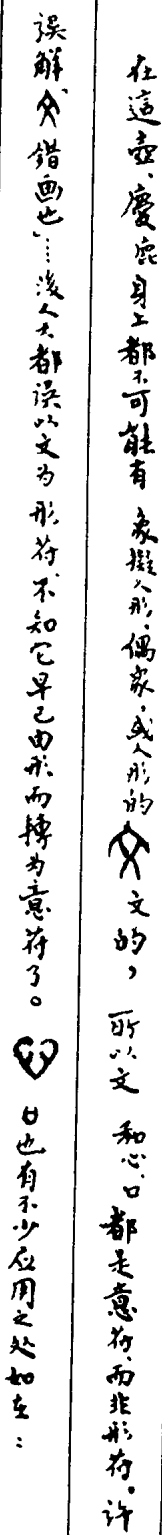 在這壺、慶鹿身上都不可能有象擬人形、偶象，或人形的文的，所以文和心、口都是意符，而非形符。許
誤解「文錯画也」……後人大都誤以文为形符，不知它早已由形而轉为意符了。心口也有不少应用之处如在：